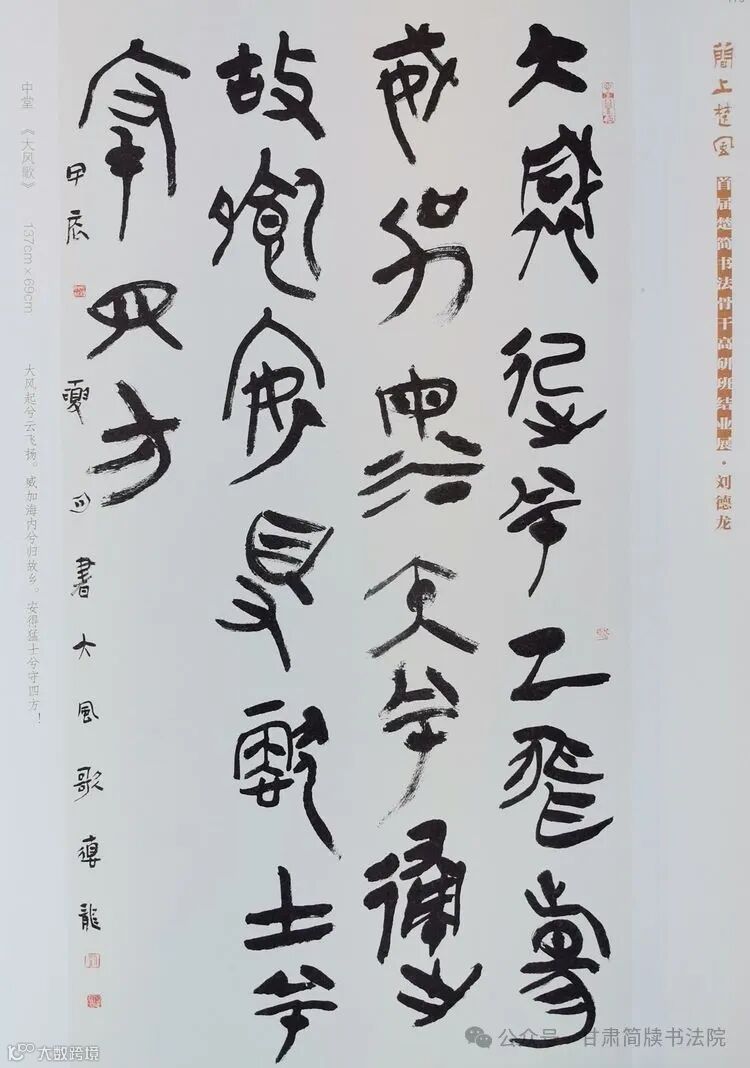 简上楚风 首届楚简书法骨干高研班结业展·刘德龙
大风起兮云飞扬
威加海内兮归
故乡安得猛士兮
守四方
甲辰夏月书大风歌德龙
中堂 《大风歌》 137cm×69cm 大风起兮云飞扬。威加海内兮归故乡。安得猛士兮守四方！
公众号·甘肃简牍书法院
大数跨境